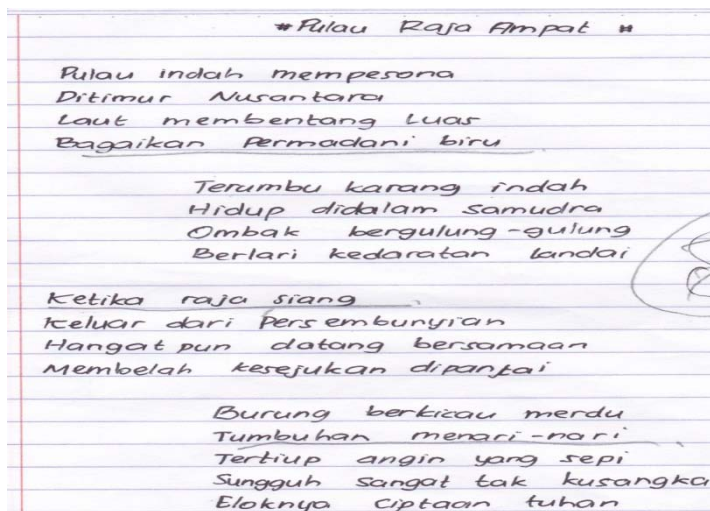 # Pulau Raja Ampat #
Pulau indah mempesona
Ditimur Nusantara
Laut membentang Luas
Bagaikan Permadani biru
Terumbu karang indah
Hidup didalam samudra
Ombak bergulung-gulung
Berlari kedaratan landai
Ketika raja siang
Keluar dari Persembunyian
Hangat pun datang bersamaan
Membelah kesejukan dipantai
Burung berkicau merdu
Tumbuhan menari-nari
Tertiup angin yang sepi
Sungguh sangat tak kusangka
Eloknya ciptaan tuhan